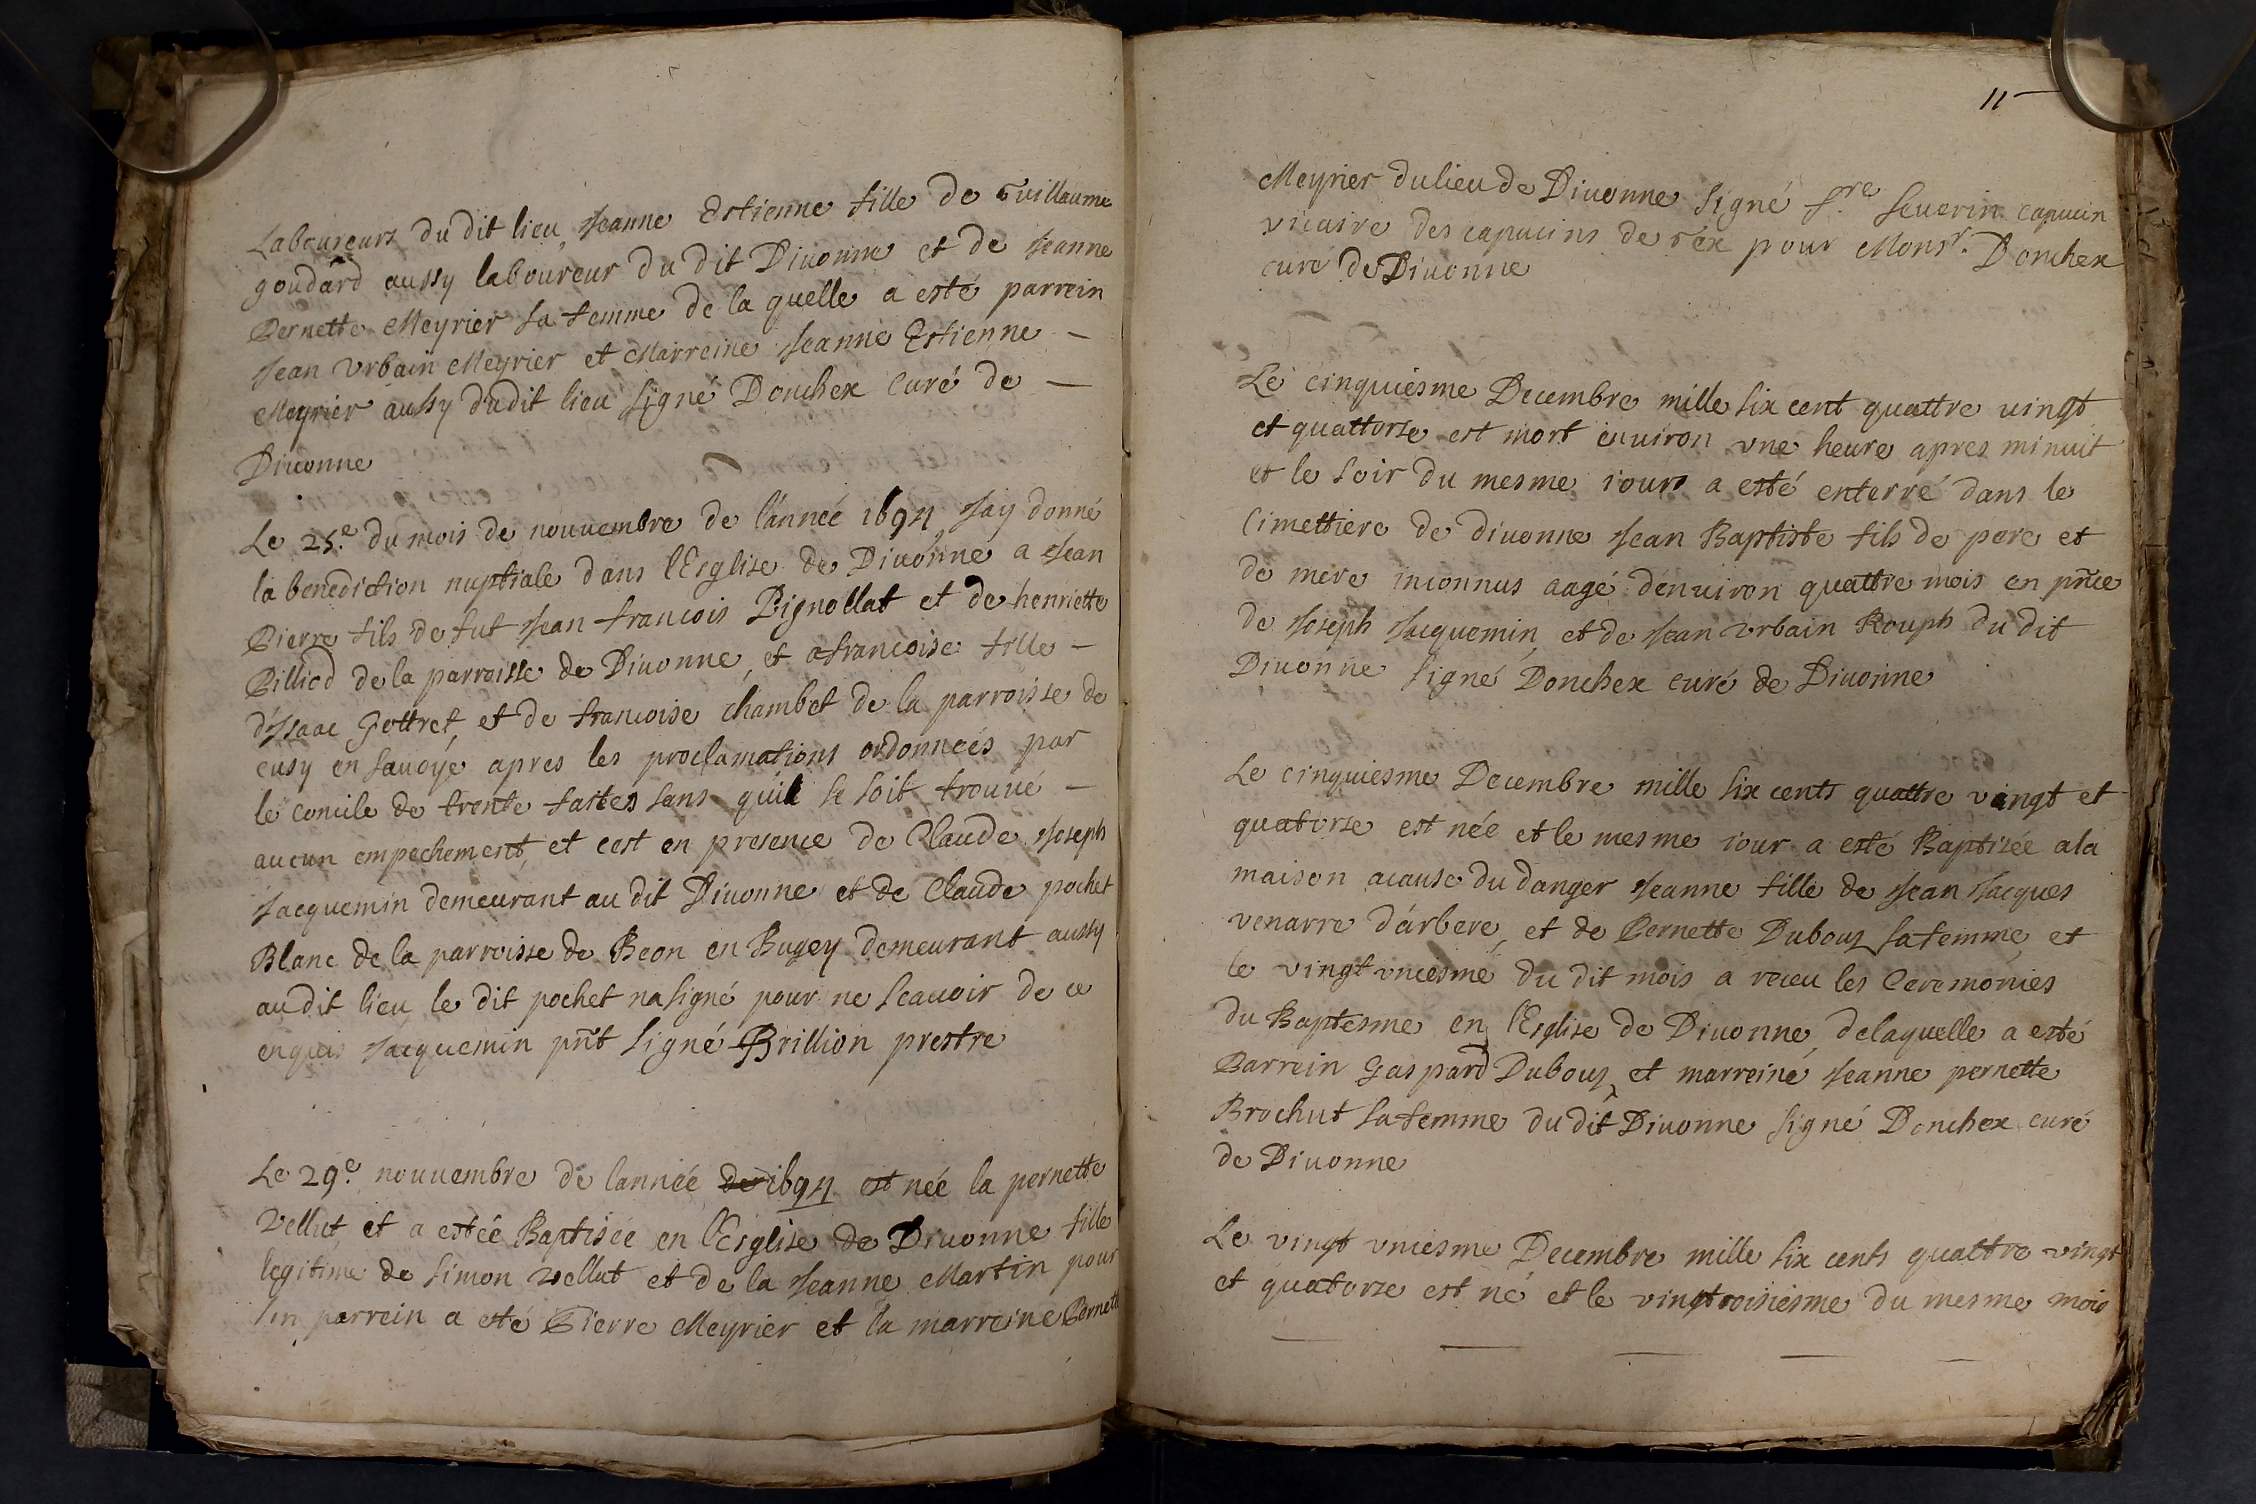 Laboureurs du dit lieu, Jeanne Estienne fille de Guillaume
goudard aussy laboureur du dit Diuonne et de Jeanne
Pernette Meyrier sa femme de la quelle a esté parrein
Jean Vrbain Meyrier et Marreine Jeanne Estienne –
Meyrier aussy dudit lieu signé Donchex Curé de –
Diuonne
Le 25.e du mois de nouuembre de l'année 1694 Jay donné
la benediction nuptiale dans l'Esglise de Diuonne a Jean
Pierre fils de fut Jean francois Pignollat et de henriette
Pilliod de la parroisse de Diuonne, et a francoise fille –
d'Isaac Gottret, et de francoise chambet de la parroisse de
cusy en sauoye apres les proclamations ordonneés par
le concile de trente faites sans quil se soit trouué –
aucun empechement, et cest en presence de Claude Joseph
Jacquemin demeurant au dit Diuonne et de Claude pochet
Blanc de la parroisse de Beon en Bugey demeurant aussy
audit lieu le dit pochet na signé pour ne scauoir de ce
enquis Jacquemin pnt signé Brillion prestre
Le 29.e nouuembre de lanneé de 1694 est neé la pernette
Vellut, et a esteé Baptiseé en l'Esglise de Diuonne fille
legitime de Simon Vellut et de la Jeanne Martin pour
sin parrein a esté Pierre Meyrier et la marreine Pernette
11
Meyrier du lieu de Diuonne signé f.re seuerin capucin
vicaire des capucins de Gex pour Monsr. Donchex
curé de Diuonne
Le cinquiesme Decembre mille six cent quattre uingt
et quattorse est mort enuiron vne heure apres minuit
et le soir du mesme iour a esté enterré dans le
Cimettiere de diuonne Jean Baptiste fils de pere et
de mere inconnus aagé denuiron quattre mois en pnce
de Joseph Jacquemin, et de Jean vrbain Rouph du dit
Diuonne signé Donchex curé de Diuonne
Le cinquiesme Decembre mille six cents quattre vingt et
quatorse est née et le mesme iour a esté Baptisée ala
maison acause du danger Jeanne fille de Jean Jacques
venarre d'arbere, et de Pernette Dubouz sa femme, et
le vingt vniesme du dit mois a receu les Ceremonies
du Baptesme en l'Esglise de Diuonne, delaquelle a esté
Parrein Gaspard Dubouz, et marreine Jeanne pernette
Brochut sa femme du dit Diuonne signé Donchex curé
de Diuonne
Le vingt vniesme Decembre mille six cents quattre vingt
et quatorze est né et le vingtroisiesme du mesme mois